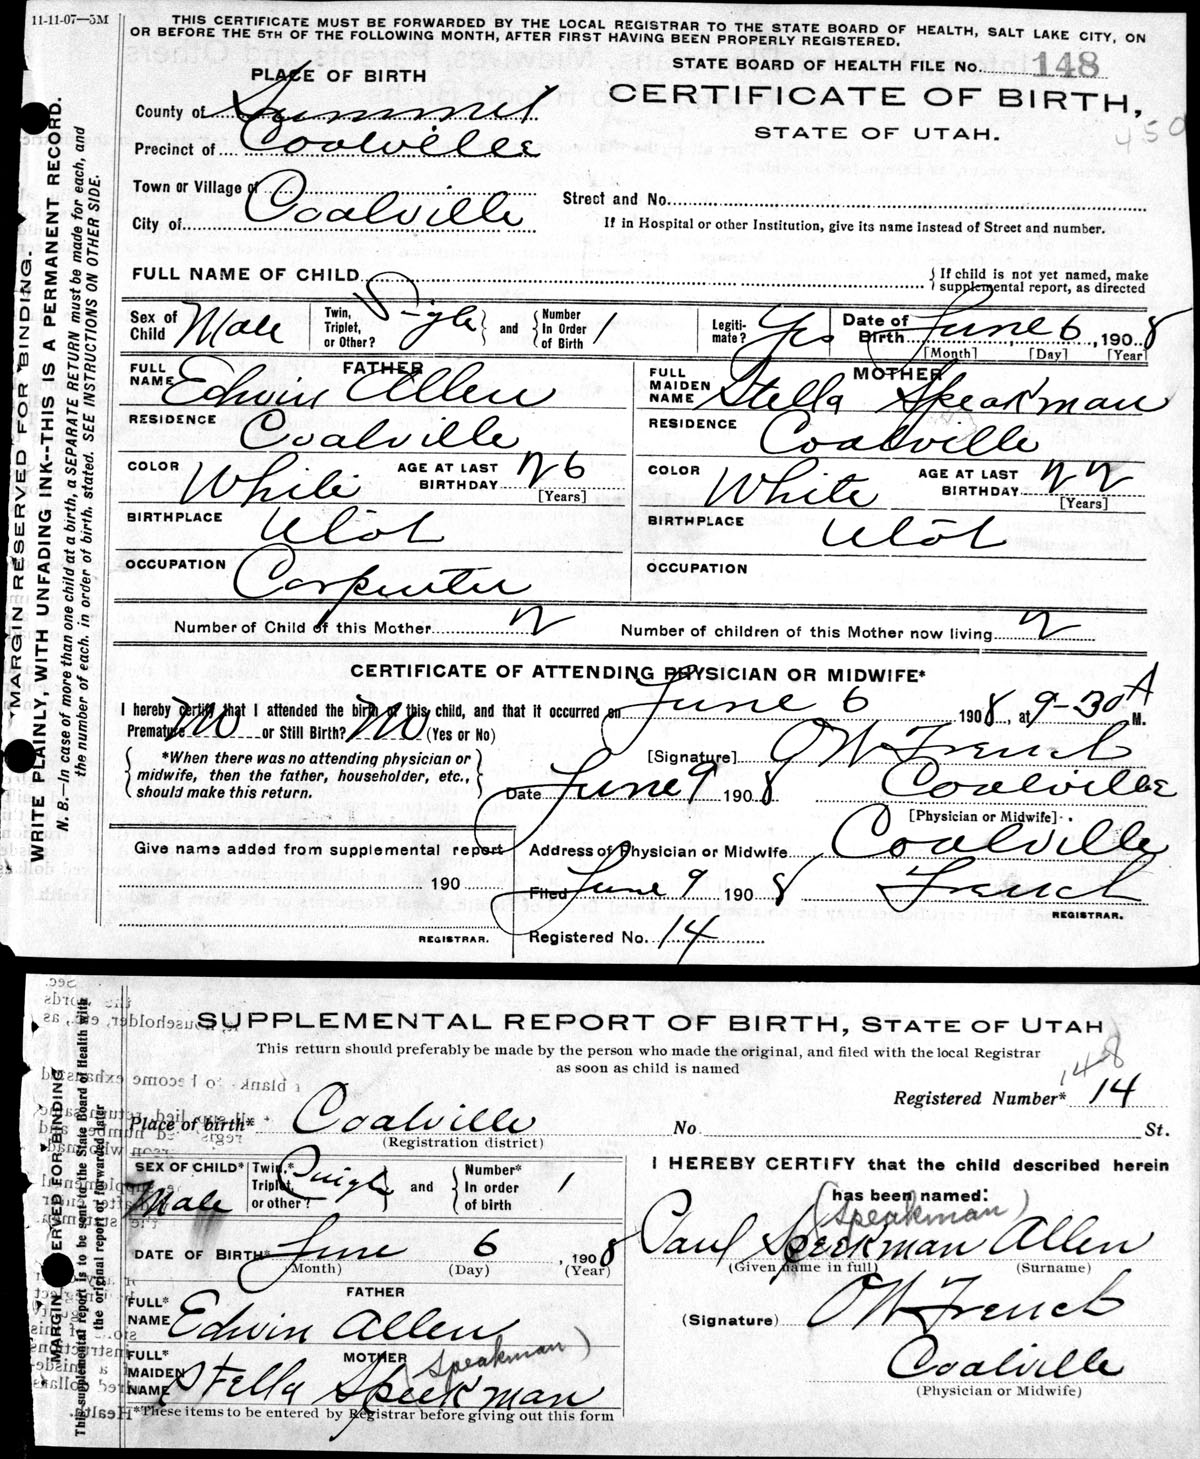 11-11-07—5M
THIS CERTIFICATE MUST BE FORWARDED BY THE LOCAL REGISTRAR TO THE STATE BOARD OF HEALTH, SALT LAKE CITY, ON
OR BEFORE THE 5TH OF THE FOLLOWING MONTH, AFTER FIRST HAVING BEEN PROPERLY REGISTERED.
STATE BOARD OF HEALTH FILE No. 148
PLACE OF BIRTH
CERTIFICATE OF BIRTH,
STATE OF UTAH.
450
County of Summit
Precinct of Coalville
Town or Village of
City of Coalville
Street and No.
If in Hospital or other Institution, give its name instead of Street and number.
FULL NAME OF CHILD
{ If child is not yet named, make
supplemental report, as directed
Sex of Child Male
Twin, Triplet, or Other? Single } and { Number In Order of Birth 1
Legitimate? Yes
Date of Birth June 6, 1908
[Month] [Day] [Year]
FATHER
FULL NAME Edwin Allen
RESIDENCE Coalville
COLOR White AGE AT LAST BIRTHDAY 26
[Years]
BIRTHPLACE Utah
OCCUPATION Carpenter
MOTHER
FULL MAIDEN NAME Stella Speakman
RESIDENCE Coalville
COLOR White AGE AT LAST BIRTHDAY 22
[Years]
BIRTHPLACE Utah
OCCUPATION
Number of Child of this Mother 2 Number of children of this Mother now living 2
CERTIFICATE OF ATTENDING PHYSICIAN OR MIDWIFE*
I hereby certify that I attended the birth of this child, and that it occurred on June 6 1908, at 9-30 A M.
Premature No or Still Birth? No (Yes or No)
{ *When there was no attending physician or
midwife, then the father, householder, etc.,
should make this return. }
[Signature] O W French
Date June 9 1908 Coalville
[Physician or Midwife]
Give name added from supplemental report
190
REGISTRAR.
Address of Physician or Midwife Coalville
Filed June 9 1908 French
REGISTRAR.
Registered No. 14
MARGIN RESERVED FOR BINDING.
WRITE PLAINLY, WITH UNFADING INK--THIS IS A PERMANENT RECORD.
N. B.—In case of more than one child at a birth, a SEPARATE RETURN must be made for each, and
the number of each, in order of birth, stated. SEE INSTRUCTIONS ON OTHER SIDE.
SUPPLEMENTAL REPORT OF BIRTH, STATE OF UTAH
This return should preferably be made by the person who made the original, and filed with the local Registrar
as soon as child is named
148
Registered Number* 14
Place of birth* Coalville No. St.
(Registration district)
SEX OF CHILD* Male
Twin,* Triplet, or other? Single } and { Number* In order of birth 1
DATE OF BIRTH* June 6, 1908
(Month) (Day) (Year)
FATHER
FULL* NAME Edwin Allen
MOTHER
(Speakman)
FULL* MAIDEN NAME Stella Speekman
*These items to be entered by Registrar before giving out this form
I HEREBY CERTIFY that the child described herein
has been named:
(Speakman)
Paul Speekman Allen
(Given name in full) (Surname)
(Signature) O W French
Coalville
(Physician or Midwife)
MARGIN RESERVED FOR BINDING
This supplemental report is to be sent to the State Board of Health with
the original report or forwarded later